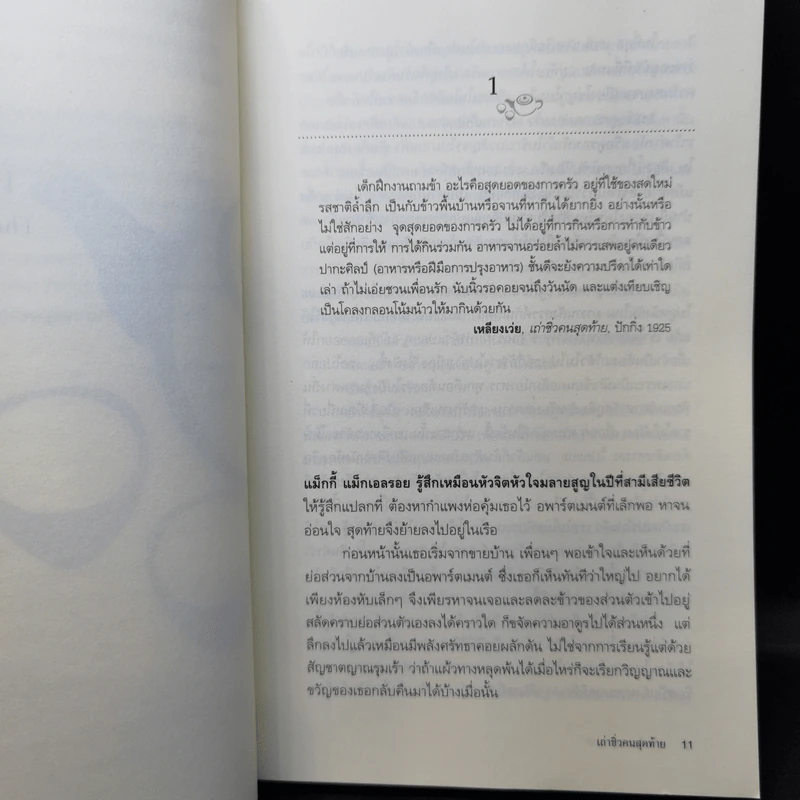 1
เด็กฝึกงานถามข้า อะไรคือสุดยอดของการครัว อยู่ที่ใช้ของสดใหม่
รสชาติล้ำลึก เป็นกับข้าวพื้นบ้านหรือจานที่หากินได้ยากยิ่ง อย่างนั้นหรือ
ไม่ใช่สักอย่าง จุดสุดยอดของการครัว ไม่ได้อยู่ที่การกินหรือการทำกับข้าว
แต่อยู่ที่การให้ การได้กินร่วมกัน อาหารจานอร่อยล้ำไม่ควรเสพอยู่คนเดียว
ปากะศิลป์ (อาหารหรือฝีมือการปรุงอาหาร) ชั้นดีจะยังความปรีดาได้เท่าใด
เล่า ถ้าไม่เอ่ยชวนเพื่อนรัก นับนิ้วรอคอยจนถึงวันนัด และแต่งเทียบเชิญ
เป็นโคลงกลอนโน้มน้าวให้มากินด้วยกัน
เหลียงเว่ย, เถ่าชิ่วคนสุดท้าย, ปักกิ่ง 1925
แม็กกี้ แม็กเอลรอย รู้สึกเหมือนหัวจิตหัวใจมลายสูญในปีที่สามีเสียชีวิต
ให้รู้สึกแปลกที่ ต้องหากำแพงห่อคุ้มเธอไว้ อพาร์ตเมนต์ที่เล็กพอ หาจน
อ่อนใจ สุดท้ายจึงย้ายลงไปอยู่ในเรือ
ก่อนหน้านั้นเธอเริ่มจากขายบ้าน เพื่อนๆ พอเข้าใจและเห็นด้วยที่
ย่อส่วนจากบ้านลงเป็นอพาร์ตเมนต์ ซึ่งเธอก็เห็นทันทีว่าใหญ่ไป อยากได้
เพียงห้องหับเล็กๆ จึงเพียรหาจนเจอและลดละข้าวของส่วนตัวเข้าไปอยู่
สลัดคราบย่อส่วนตัวเองลงได้คราวใด ก็ขจัดความอาดูรไปได้ส่วนหนึ่ง แต่
ลึกลงไปแล้วเหมือนมีพลังศรัทธาคอยผลักดัน ไม่ใช่จากการเรียนรู้แต่ด้วย
สัญชาตญาณรุมเร้า ว่าถ้าแผ้วทางหลุดพ้นได้เมื่อไหร่ก็จะเรียกวิญญาณและ
ขวัญของเธอกลับคืนมาได้บ้างเมื่อนั้น
เถ่าชิ่วคนสุดท้าย 11